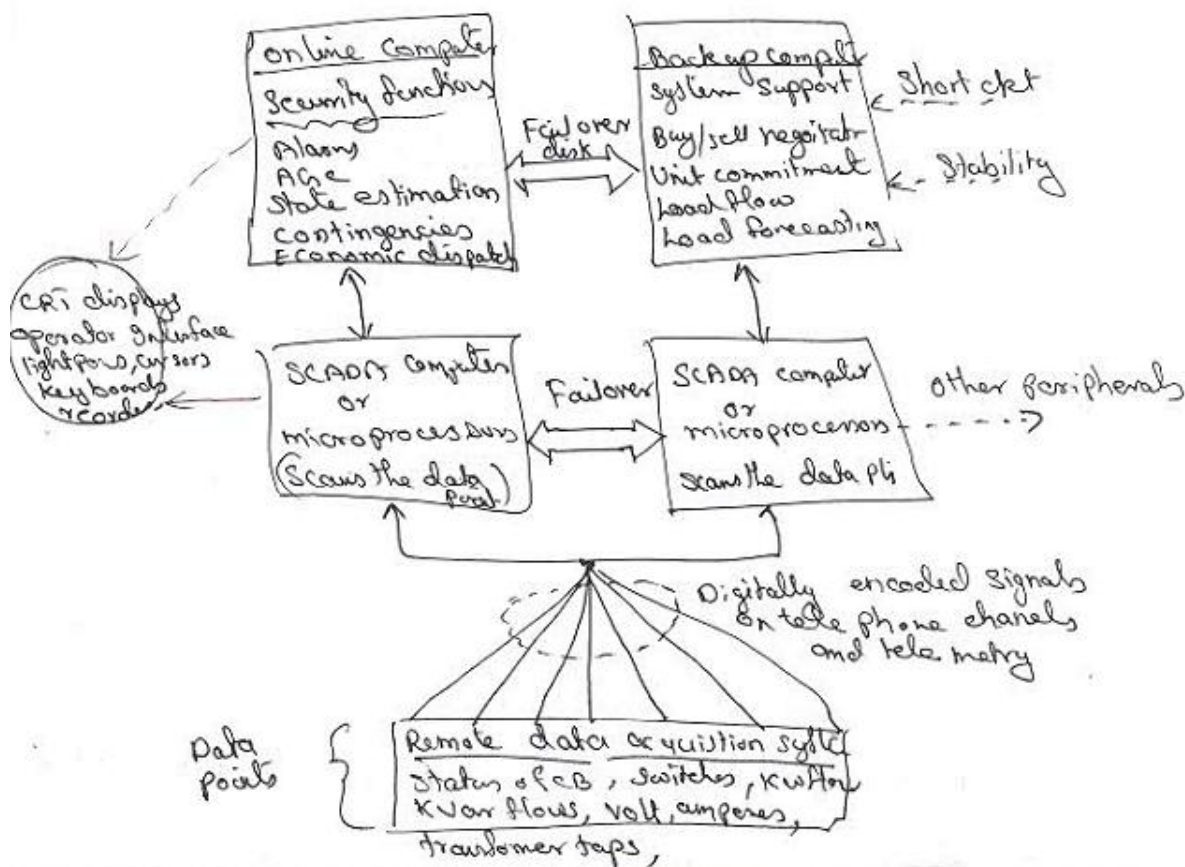 Online Computer
Security functions
Alarms
AGC
State estimation
Contingencies
Economic dispatch
Failover
disk
Backup comput
System Support
Buy/sell negoitatr
Unit commitment
Load flow
Load forecasting
Short ckt
Stability
CRT displays
operator Interface
lightpens, cursors
Keyboards
recorder
SCADA computer
or
microprocessors
(Scans the data
Failover
SCADA computer
or
microprocessors
Scans the data pts
Other Peripherals
Digitally encoded signals
on tele phone chanels
and tele metry
Data
points
Remote data acquistion syste
Status of CB, switches, KW flow
KVar flows, volt, amperes,
transformer taps,